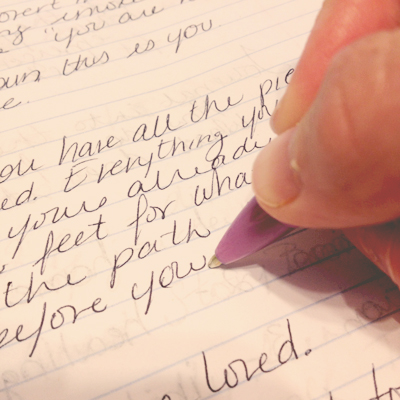 "you are
this is you
e.
ou have all the pie
ed. Everything yo
yours already
feet for wha
the path
before you
loved.